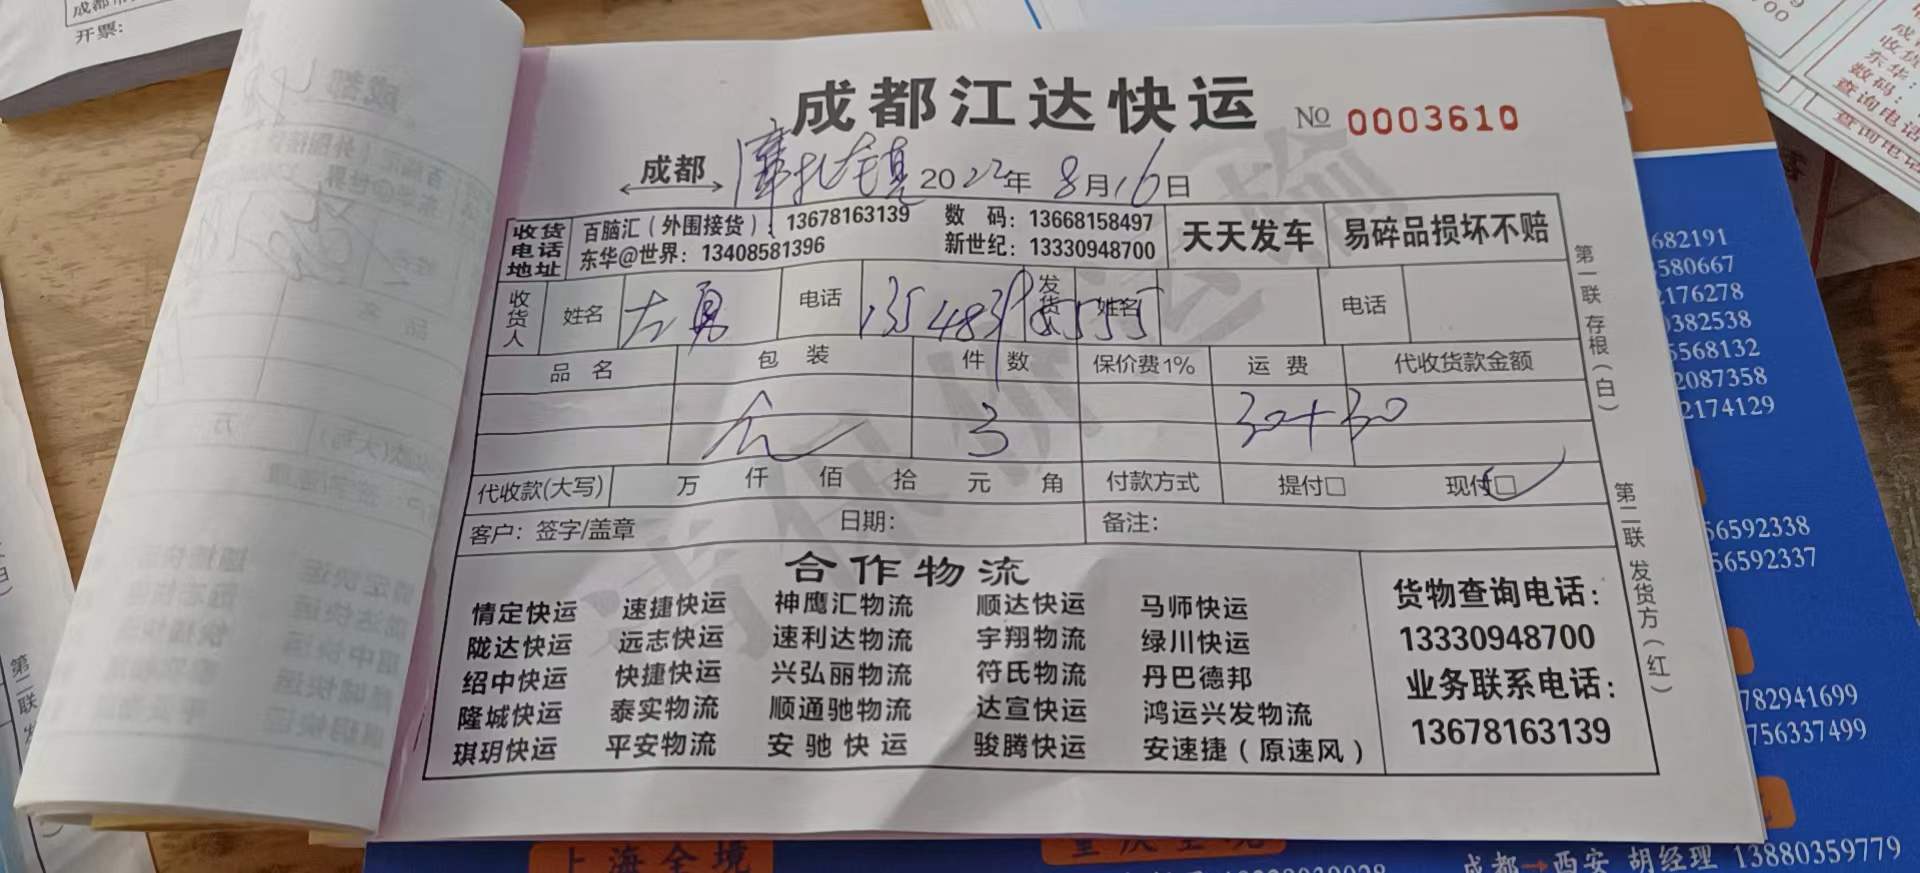 成都江达快运 No 0003610
成都 摩扎镇 2022年 8月16日
收货电话地址 百脑汇（外围接货）：13678163139 数码：13668158497 天天发车 易碎品损坏不赔
东华@世界：13408581396 新世纪：13330948700
收货人 姓名 左勇 电话 发货人 姓名 电话
品名 包装 件数 保价费1% 运费 代收货款金额
3 30+30
代收款(大写) 万 仟 佰 拾 元 角 付款方式 提付□ 现付□
客户：签字/盖章 日期： 备注：
合作物流
情定快运 速捷快运 神鹰汇物流 顺达快运 马师快运
陇达快运 远志快运 速利达物流 宇翔物流 绿川快运
绍中快运 快捷快运 兴弘丽物流 符氏物流 丹巴德邦
隆城快运 泰实物流 顺通驰物流 达宣快运 鸿运兴发物流
琪玥快运 平安物流 安驰快运 骏腾快运 安速捷（原速风）
货物查询电话：
13330948700
业务联系电话：
13678163139
第一联 存根（白）
第二联 发货方（红）
682191
580667
2176278
0382538
5568132
2087358
2174129
56592338
56592337
782941699
756337499
上海全境
成都→西安 胡经理 13880359779
开票：
查询电话